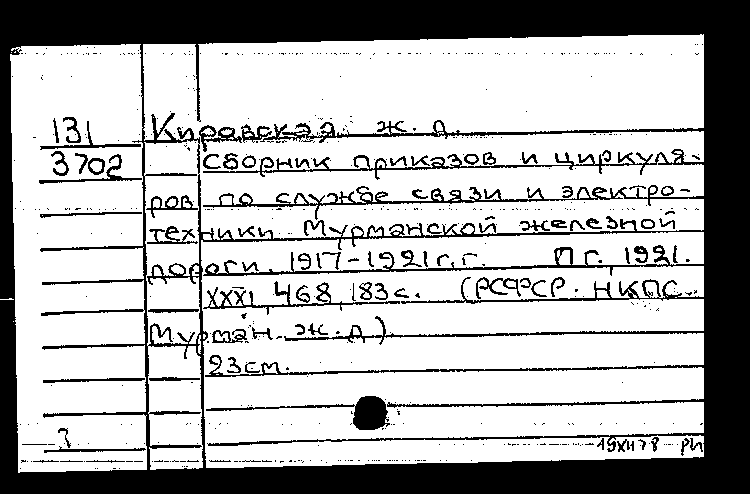 131 Кировская ж. д.
3702 Сборник приказов и циркуля-
ров по службе связи и электро-
техники Мурманской железной
дороги. 1917-1921 г.г. Пг., 1921.
XXXI, 468, 183 с. (РСФСР. НКПС.
Мурман. ж. д.)
23 см.
19XII78 РИ